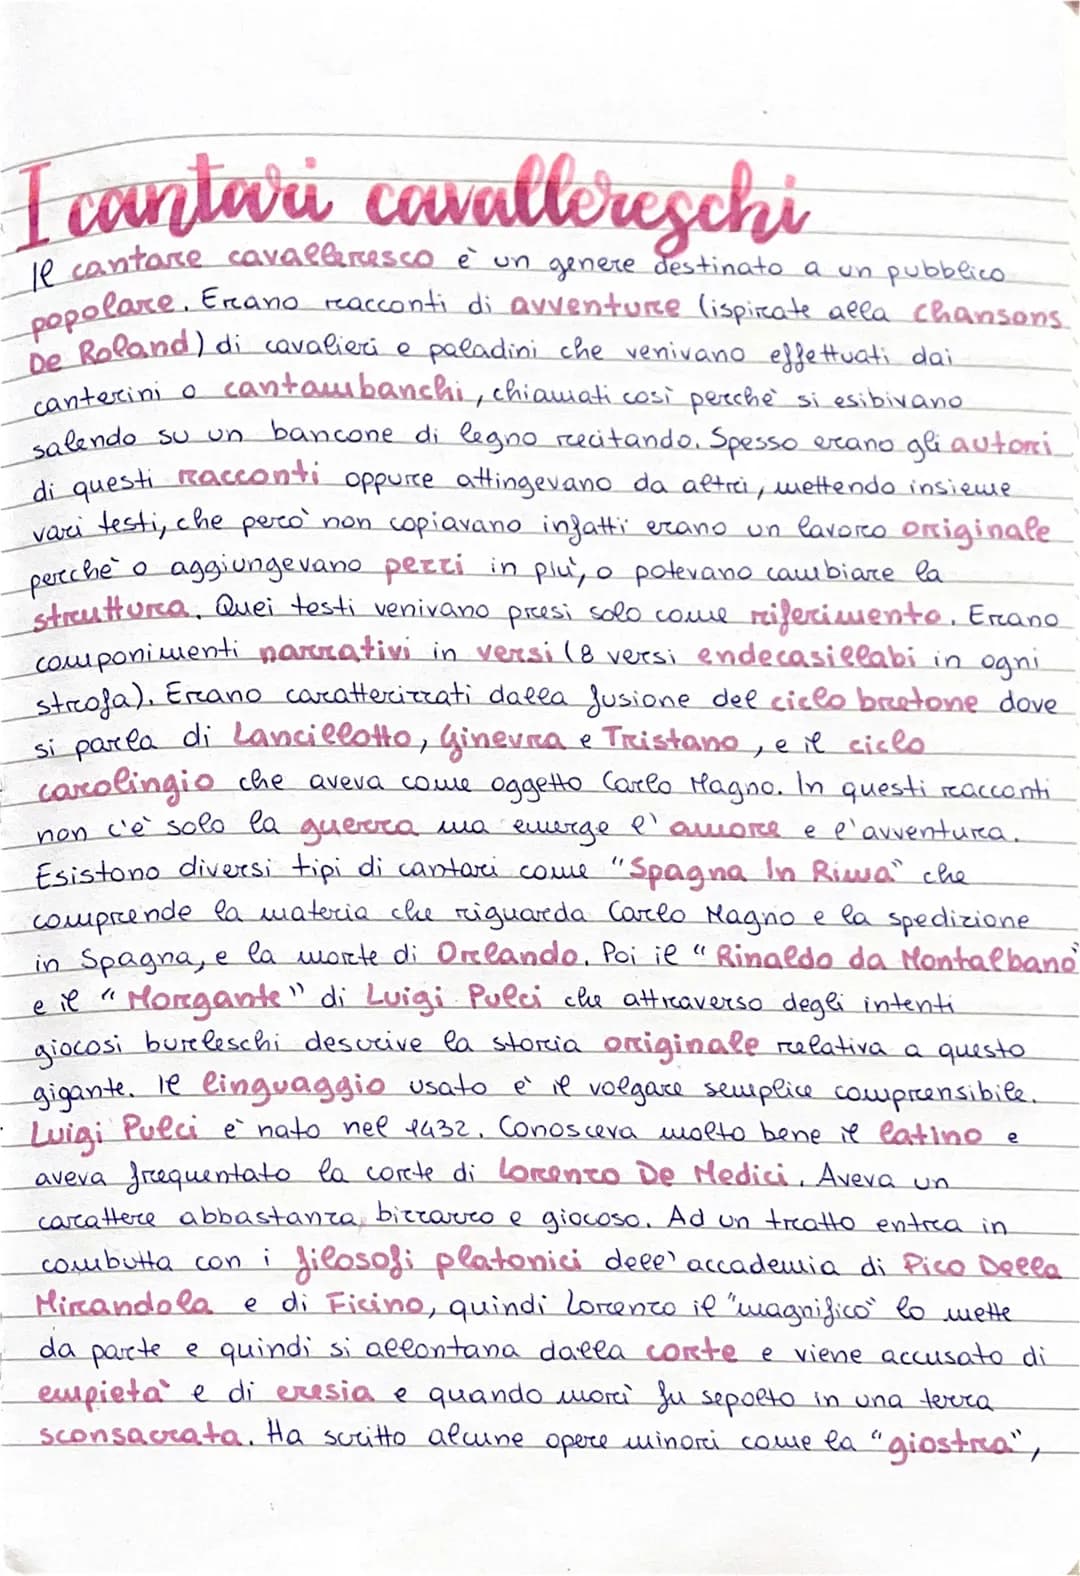 I cantari cavallereschi
Il cantare cavalleresco è un genere destinato a un pubblico
popolare. Erano racconti di avventure (ispirate alla Chansons
De Roland) di cavalieri e paladini che venivano effettuati dai
canterini o cantambanchi, chiamati così perchè si esibivano
salendo su un bancone di legno recitando. Spesso erano gli autori
di questi racconti oppure attingevano da altri, mettendo insieme
vari testi, che però non copiavano infatti erano un lavoro originale
perchè o aggiungevano pezzi in più, o potevano cambiare la
struttura. Quei testi venivano presi solo come riferimento. Erano
componimenti narrativi in versi (8 versi endecasillabi in ogni
strofa). Erano caratterizzati dalla fusione del ciclo bretone dove
si parla di Lancillotto, Ginevra e Tristano, e il ciclo
carolingio che aveva come oggetto Carlo Magno. In questi racconti
non c'è solo la guerra ma emerge l'amore e l'avventura.
Esistono diversi tipi di cantari come "Spagna In Rima" che
comprende la materia che riguarda Carlo Magno e la spedizione
in Spagna, e la morte di Orlando. Poi il "Rinaldo da Montalbano"
e il "Morgante" di Luigi Pulci che attraverso degli intenti
giocosi burleschi descrive la storia originale relativa a questo
gigante. Il linguaggio usato è il volgare semplice comprensibile.
Luigi Pulci è nato nel 1432. Conosceva molto bene il latino e
aveva frequentato la corte di Lorenzo De Medici. Aveva un
carattere abbastanza bizzarro e giocoso. Ad un tratto entra in
combutta con i filosofi platonici dell'accademia di Pico Della
Mirandola e di Ficino, quindi Lorenzo il "magnifico" lo mette
da parte e quindi si allontana dalla corte e viene accusato di
empietà e di eresia e quando morì fu sepolto in una terra
sconsacrata. Ha scritto alcune opere minori come la "giostra",